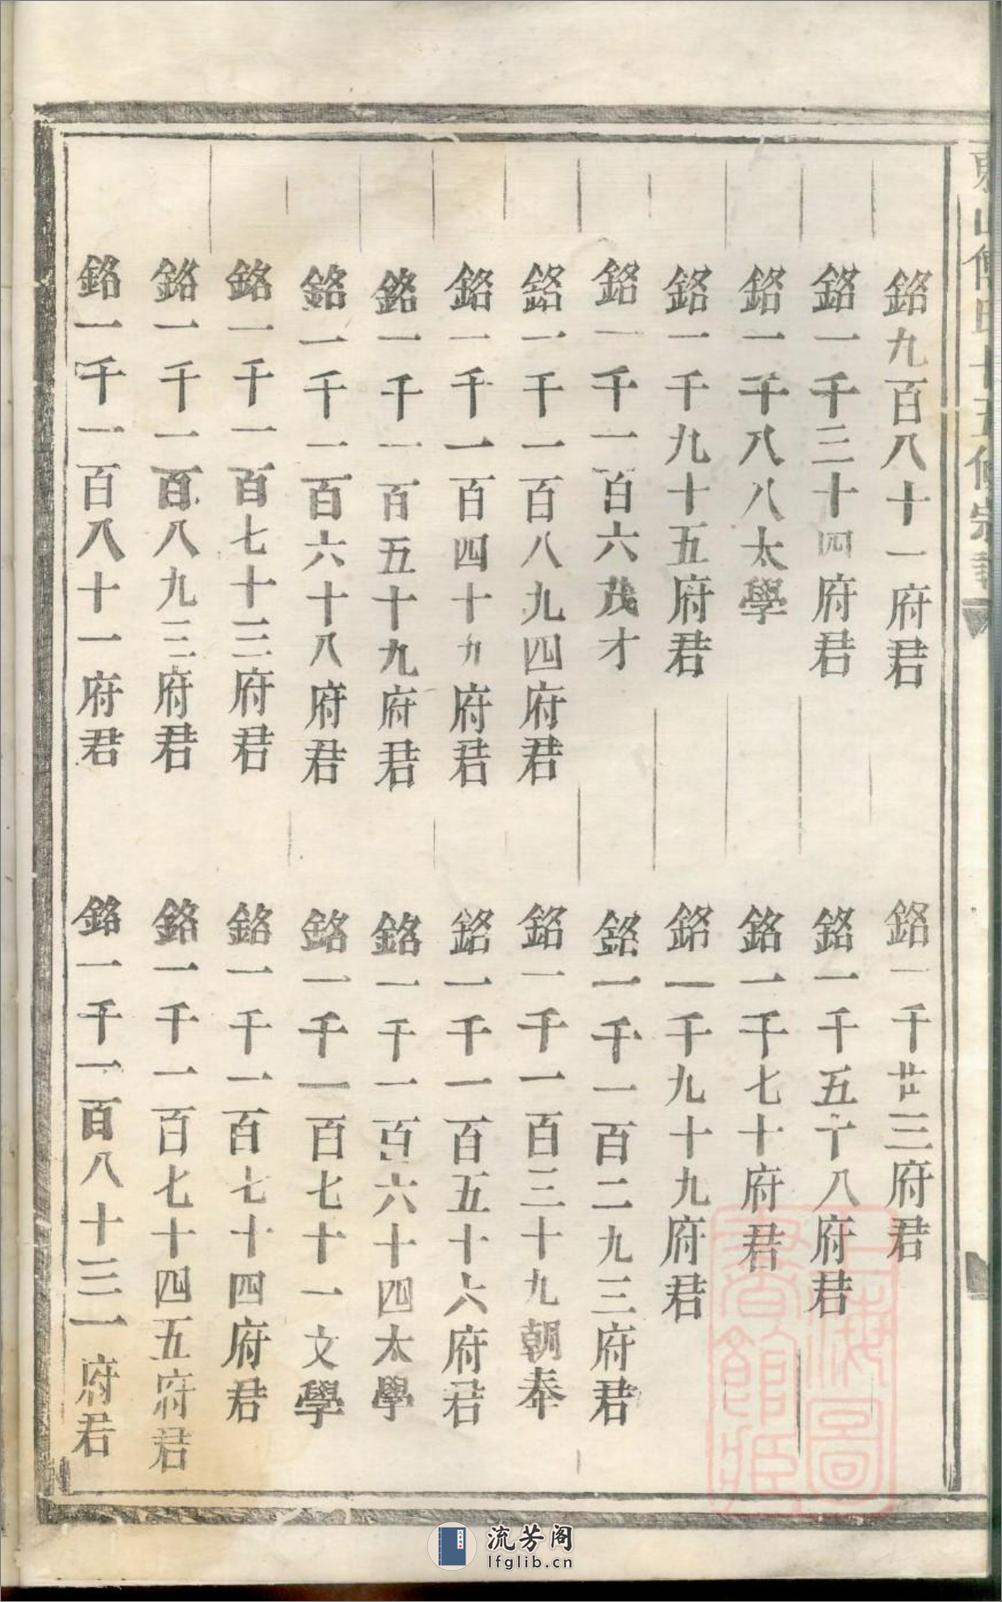 銘九百八十一府君
銘一千廿三府君
銘一千三十四府君
銘一千五十八府君
銘一千八八太學
銘一千七十府君
銘一千九十五府君
銘一千九十九府君
銘一千一百六茂才
銘一千一百二九三府君
銘一千一百八九四府君
銘一千一百三十九朝奉
銘一千一百四十九府君
銘一千一百五十六府君
銘一千一百五十九府君
銘一千一百六十四太學
銘一千一百六十八府君
銘一千一百七十一文學
銘一千一百七十三府君
銘一千一百七十四府君
銘一千一百八九三府君
銘一千一百七十四五府君
銘一千一百八十一府君
銘一千一百八十三一府君
上海圖書館藏
流芳阁
lfglib.cn